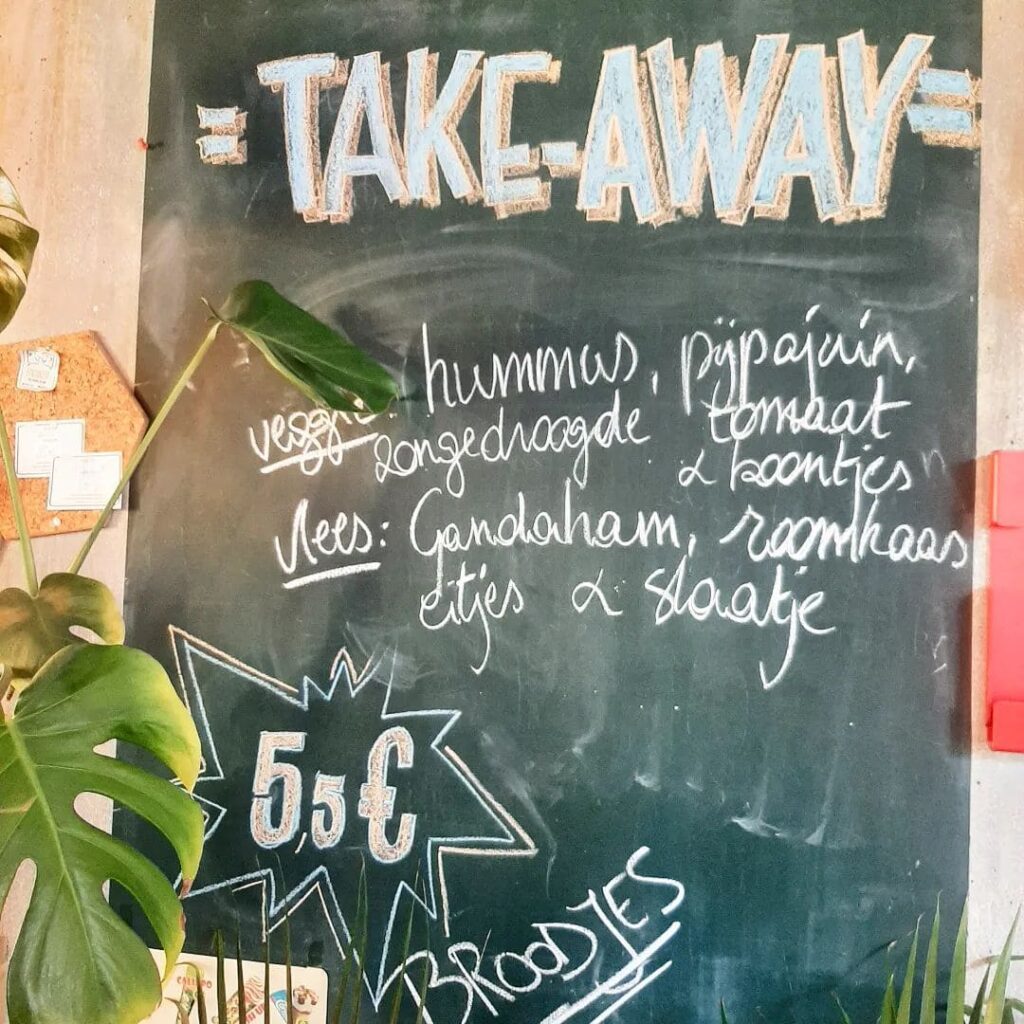 = TAKE-AWAY =
veggie: hummus, pijpajuin,
zongedroogde tomaat
& boontjes
Vlees: Gandaham, roomkaas
eitjes & slaatje
5,5€
BROODJES